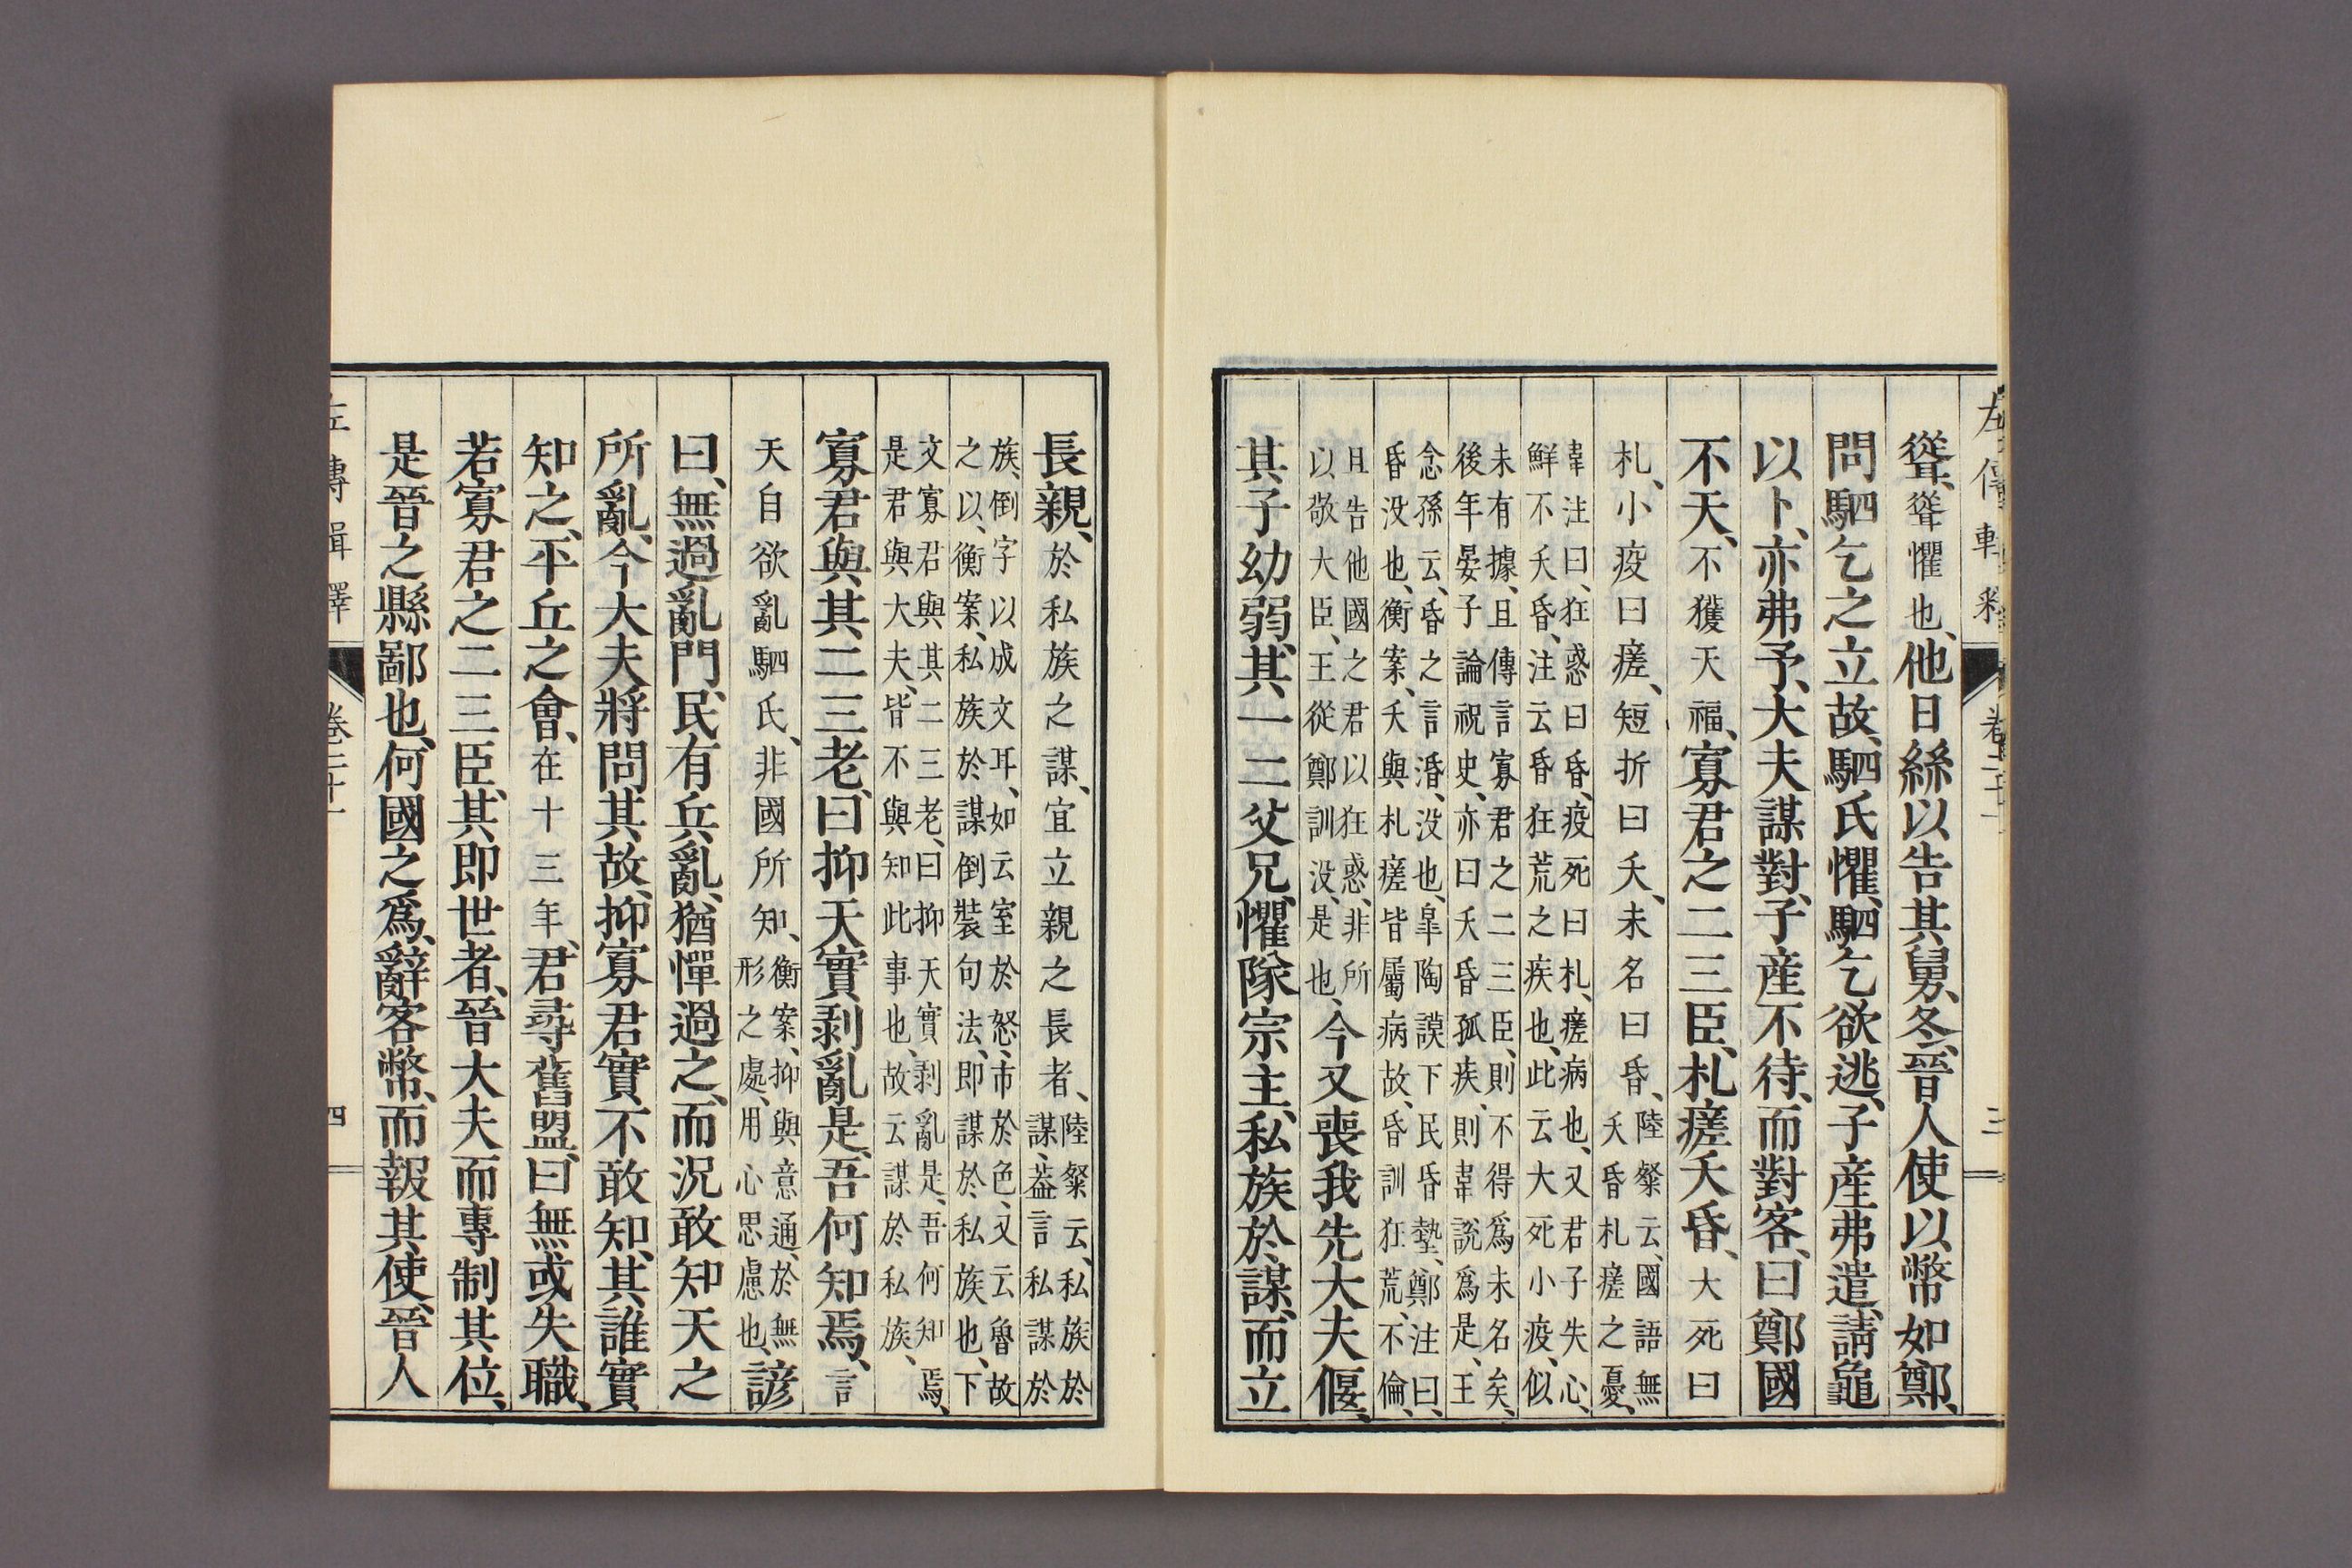 聳、聳懼也、他日絲以告其舅、冬、晉人使以幣如鄭、
問駟乞之立故、駟氏懼、駟乞欲逃、子産弗遣、請龜
以卜、亦弗予、大夫謀對、子産不待、而對客、曰鄭國
不天、不獲天福、寡君之二三臣、札瘥夭昏、大死曰
札、小疫曰瘥、短折曰夭、未名曰昏、陸粲云、國語無
夭昏札瘥之憂、
韋注曰、狂惑曰昏、疫死曰札、瘥病也、又君子失心、
鮮不夭昏、注云昏狂荒之疾也、此云大死小疫、似
未有據、且傳言寡君之二三臣、則不得爲未名矣、
後年晏子論祝史、亦曰夭昏孤疾、則韋説爲是、王
念孫云、昏之言湣、没也、皐陶謨下民昏墊、鄭注曰、
昏没也、衡案、夭與札瘥皆屬病故、昏訓狂荒、不倫、
且告他國之君以狂惑、非所
以敬大臣、王從鄭訓没、是也、今又喪我先大夫偃、
其子幼弱、其一二父兄、懼隊宗主、私族於謀、而立
左傳輯釋 卷二十一 三
長親、於私族之謀、宜立親之長者、陸粲云、私族於
謀、葢言私謀於
族、倒字以成文耳、如云室於怒、市於色、又云魯故
之以、衡案、私族於謀倒裝句法、即謀於私族也、下
文寡君與其二三老、曰抑天實剥亂是、吾何知焉、
是君與大夫、皆不與知此事也、故云謀於私族、
寡君與其二三老、曰抑天實剥亂是、吾何知焉、言
天自欲亂駟氏、非國所知、衡案、抑與意通、於無
形之處、用心思慮也、諺
曰、無過亂門、民有兵亂、猶憚過之、而況敢知天之
所亂、今大夫將問其故、抑寡君實不敢知、其誰實
知之、平丘之會、在十三年、君尋舊盟、曰無或失職、
若寡君之二三臣、其即世者、晉大夫而專制其位、
是晉之縣鄙也、何國之爲、辭客幣、而報其使、晉人
左傳輯釋 卷二十一 四